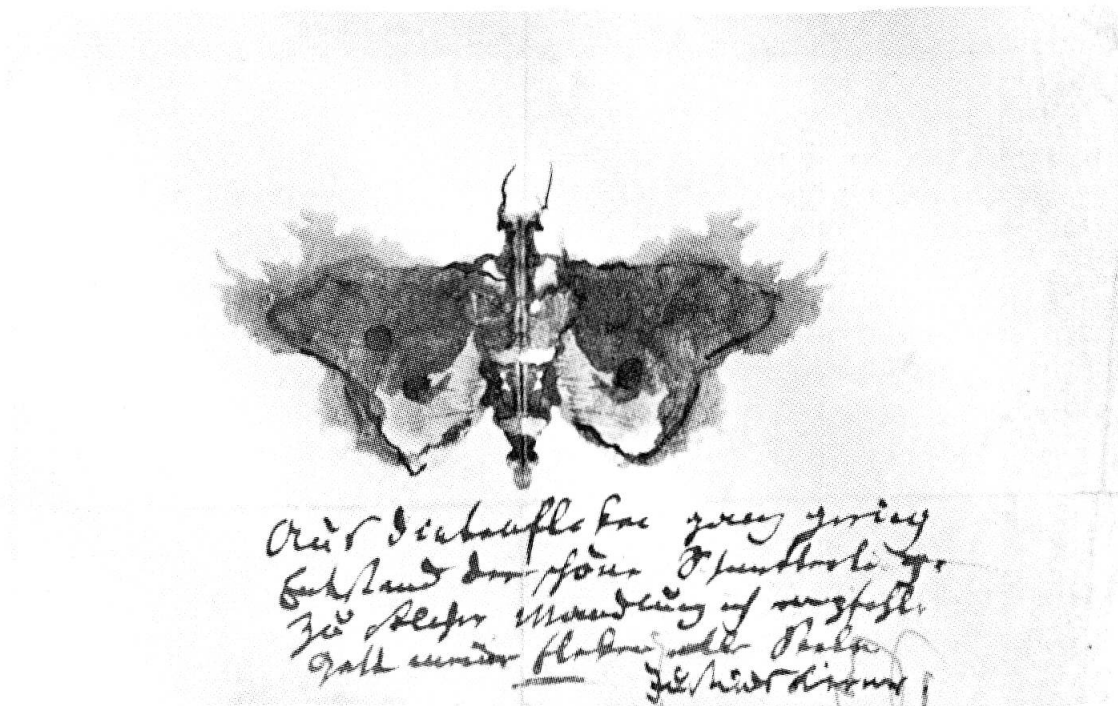 Aus Dintenfleken ganz gering
Entstand der schöne Schmetterling.
Zu solcher Wandlung ich empfehle
Gott meine flekenvolle Seele.
Justinus Kerner.